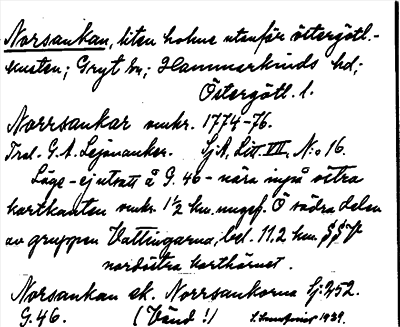 Norsankan, liten holme utanför östergötl.-
kusten; Gryt sn; Hammarkinds hd;
Östergötl. l.
Norrsankar omkr. 1774-76.
Trol. G. A. Lejonanker. SjA, Lit. VII, N:o 16.
Läge - ej utsatt å G. 46 - nära inpå östra
kartkanten omkr. 1½ km. ungef. Ö södra delen
av gruppen Vättingarna, bel. 11.2 km.
nordöstra karthörnet.
Norsankan el. Norrsankorna Sj: 252.
G. 46. (Vänd!) 1939.